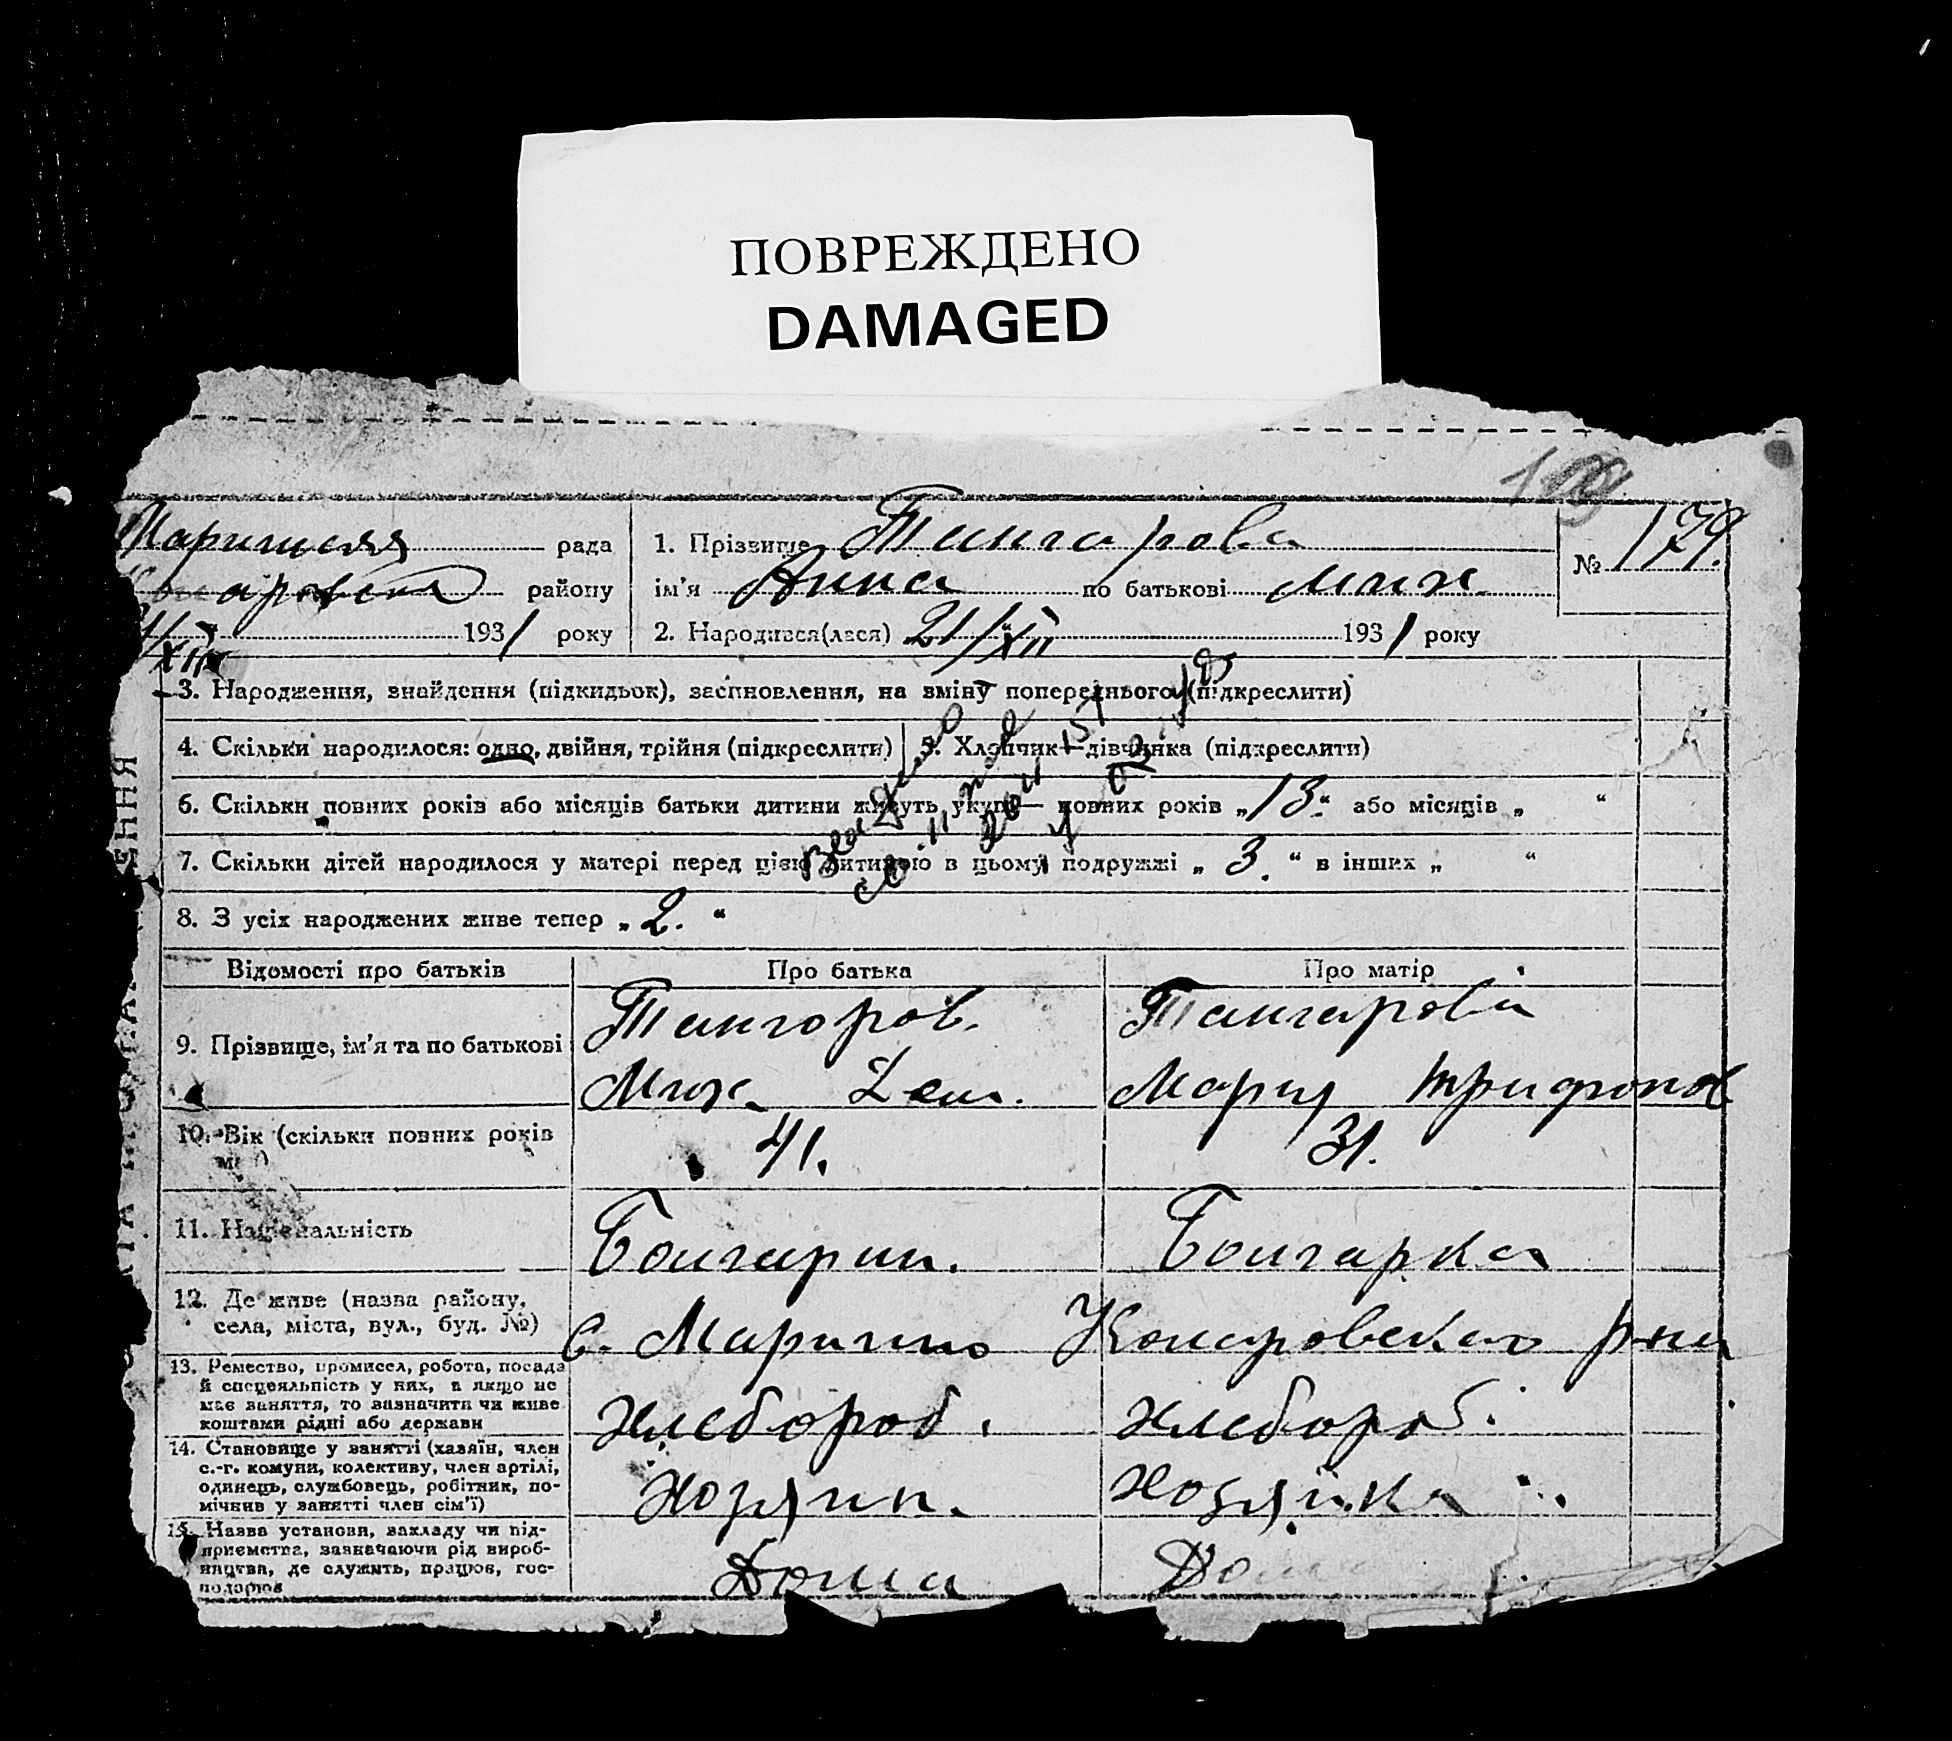 ПОВРЕЖДЕНО
DAMAGED
рада
району
193 1 року
1. Прізвище Тангарова
ім'я Анна по батькові Мих
2. Народився(лася) 21/XII 193 1 року
№ 179.
3. Народження, знайдення (підкидьок), заспновлення, на зміну попереднього (підкреслити)
4. Скільки народилося: одно, двійня, трійня (підкреслити) 5. Хлопчик—дівчинка (підкреслити)
6. Скільки повних років або місяців батьки дитини живуть укупі— повних років „ 13. “ або місяців „ “
7. Скільки дітей народилося у матері перед цією дитиною в цьому подружжі „ 3. “ в інших „ “
8. З усіх народжених живе тепер „ 2. “
Відомості про батьків Про батька Про матір
9. Прізвище, ім'я та по батькові
Тангоров. Тангарова
Мих. Дем. Мария Трифонов
10. Вік (скільки повних років
41. 31.
11. Національність Болгарин. Болгарка
12. Де живе (назва району,
села, міста, вул., буд. №)
с. Марино Комаровского р-на
13. Ремество, промисел, робота, посада
й спецеяльність у них, а якщо не
має заняття, то зазначити чи живе
коштами рідні або держави
Хлебороб. Хлебороб.
14. Становище у занятті (хазяїн, член
с.-г. комуни, колективу, член артілі,
одинець, службовець, робітник, по-
мічнив у занятті член сім'ї)
Хозяин. Хозяйка
15. Назва установи, закладу чи під-
приємства, зазначаючи рід вироб-
ництва, де служить, працює, гос-
подарює
Дома Дома